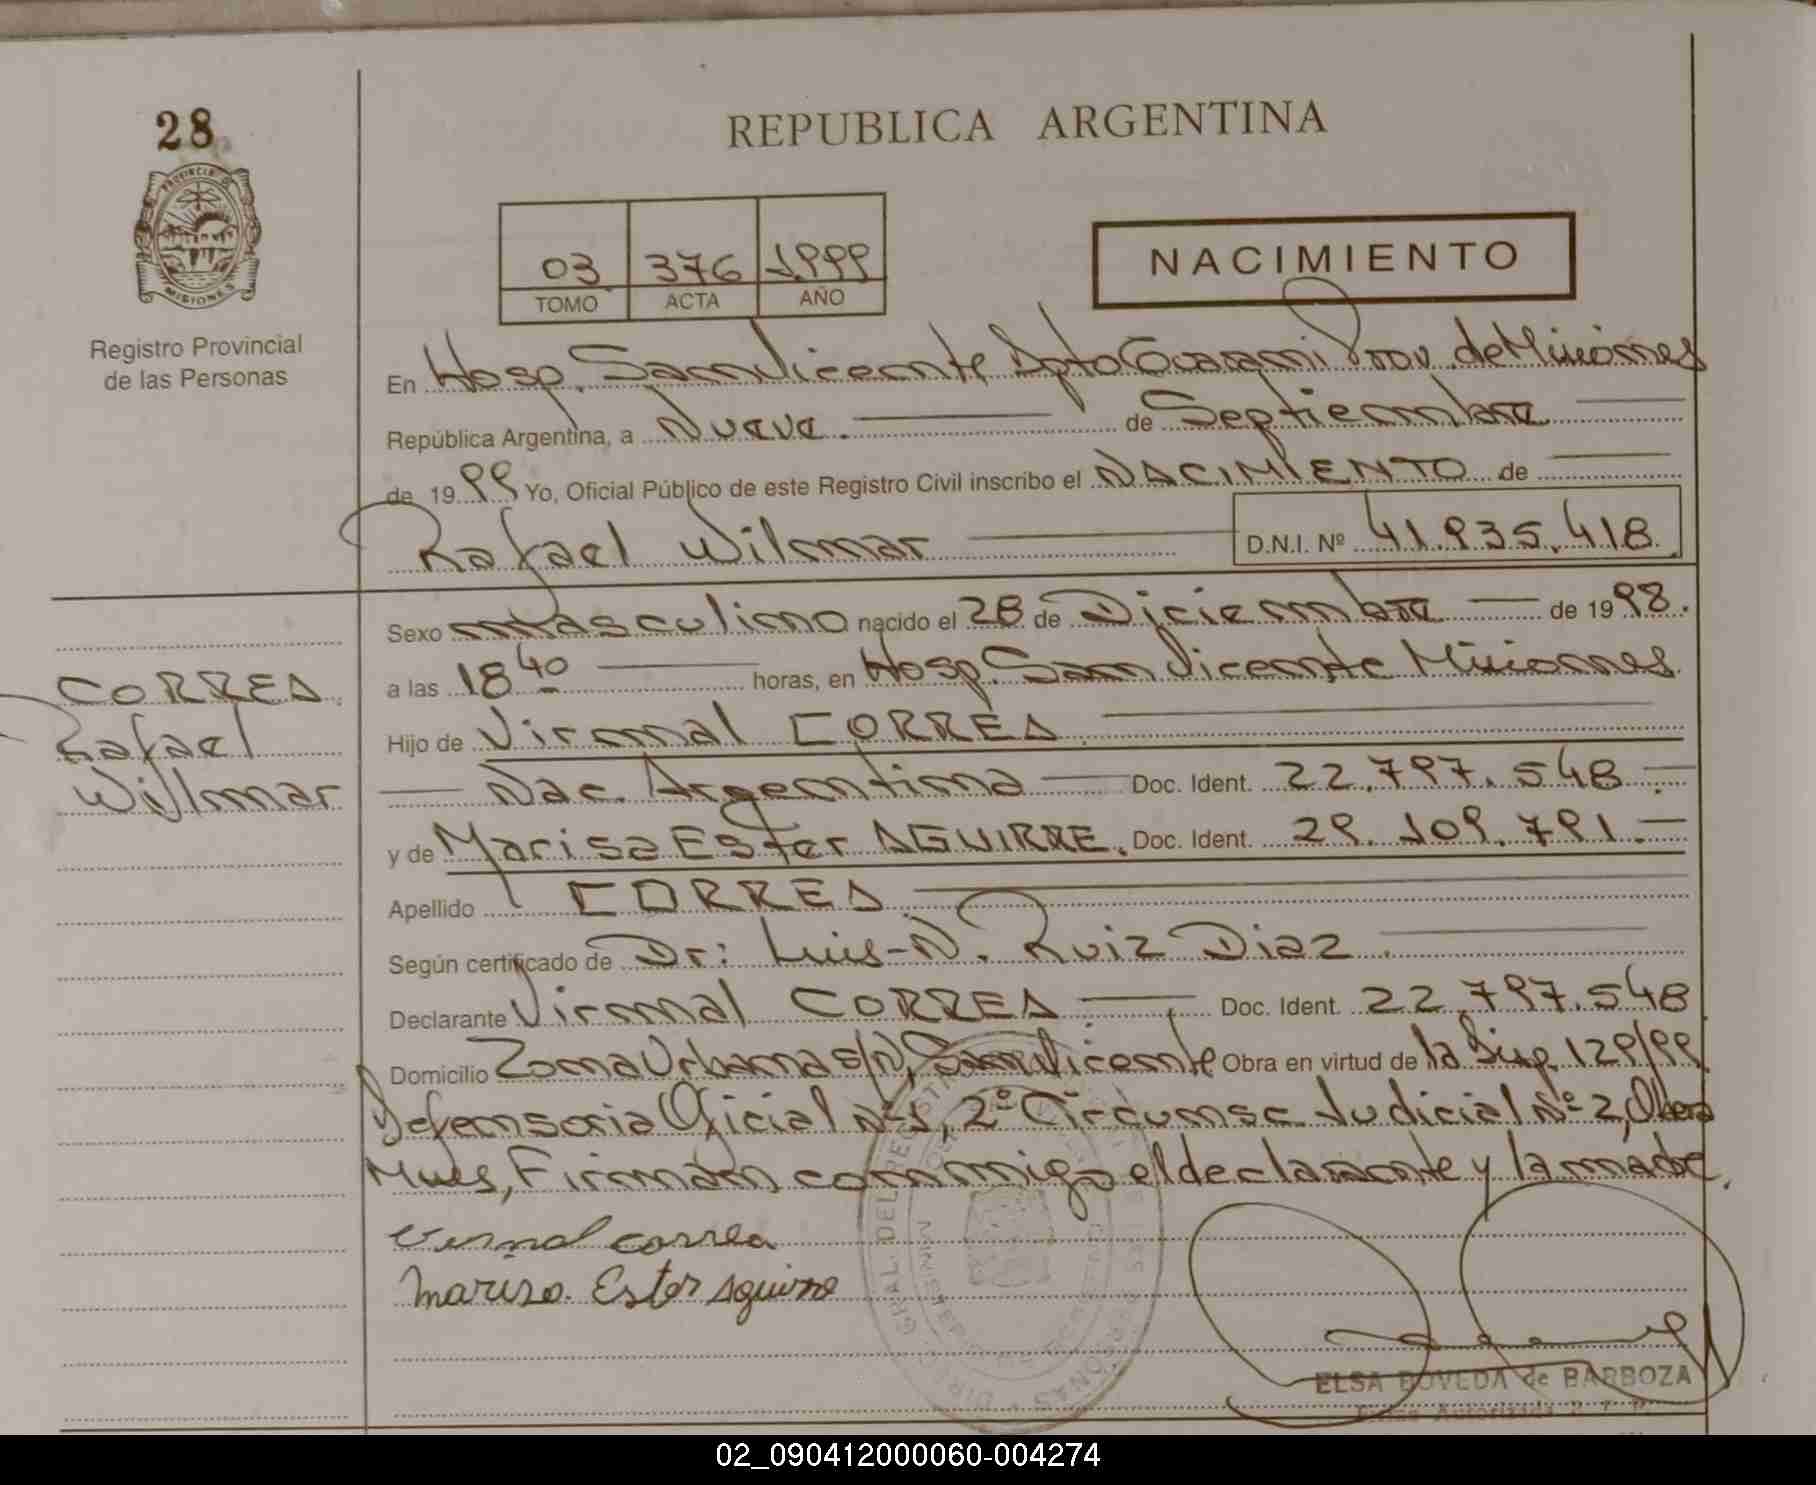 28
PROVINCIA DE
MISIONES
Registro Provincial
de las Personas
REPUBLICA ARGENTINA
03 376 1999
TOMO ACTA AÑO
NACIMIENTO
En Hosp. San Vicente Dpto Guarani Prov. de Misiones
República Argentina, a Nueve. de Septiembre
de 1999 Yo, Oficial Público de este Registro Civil inscribo el NACIMIENTO de
Rafael Wilmar D.N.I. Nº 41.935.418
Sexo masculino nacido el 28 de Diciembre de 1998.
a las 18 40 horas, en Hosp. San Vicente Misiones
Hijo de Virmal CORREA
Nac. Argentina Doc. Ident. 22.797.548
y de Marisa Ester AGUIRRE. Doc. Ident. 29.109.791.
Apellido CORREA
Según certificado de Dr: Luis-N. Ruiz Diaz
Declarante Virmal CORREA Doc. Ident. 22.797.548
Domicilio Zona Urbana s/N, San Vicente Obra en virtud de la Disp. 129/99
Defensoria Oficial Nº1, 2º Circunsc. Judicial Nº2, Obera
Mnes, Firman conmigo el declarante y la madre.
CORREA
Rafael
Wilmar
correa
Marisa Ester Aguirre
ELSA BOVEDA de BARBOZA
02_090412000060-004274